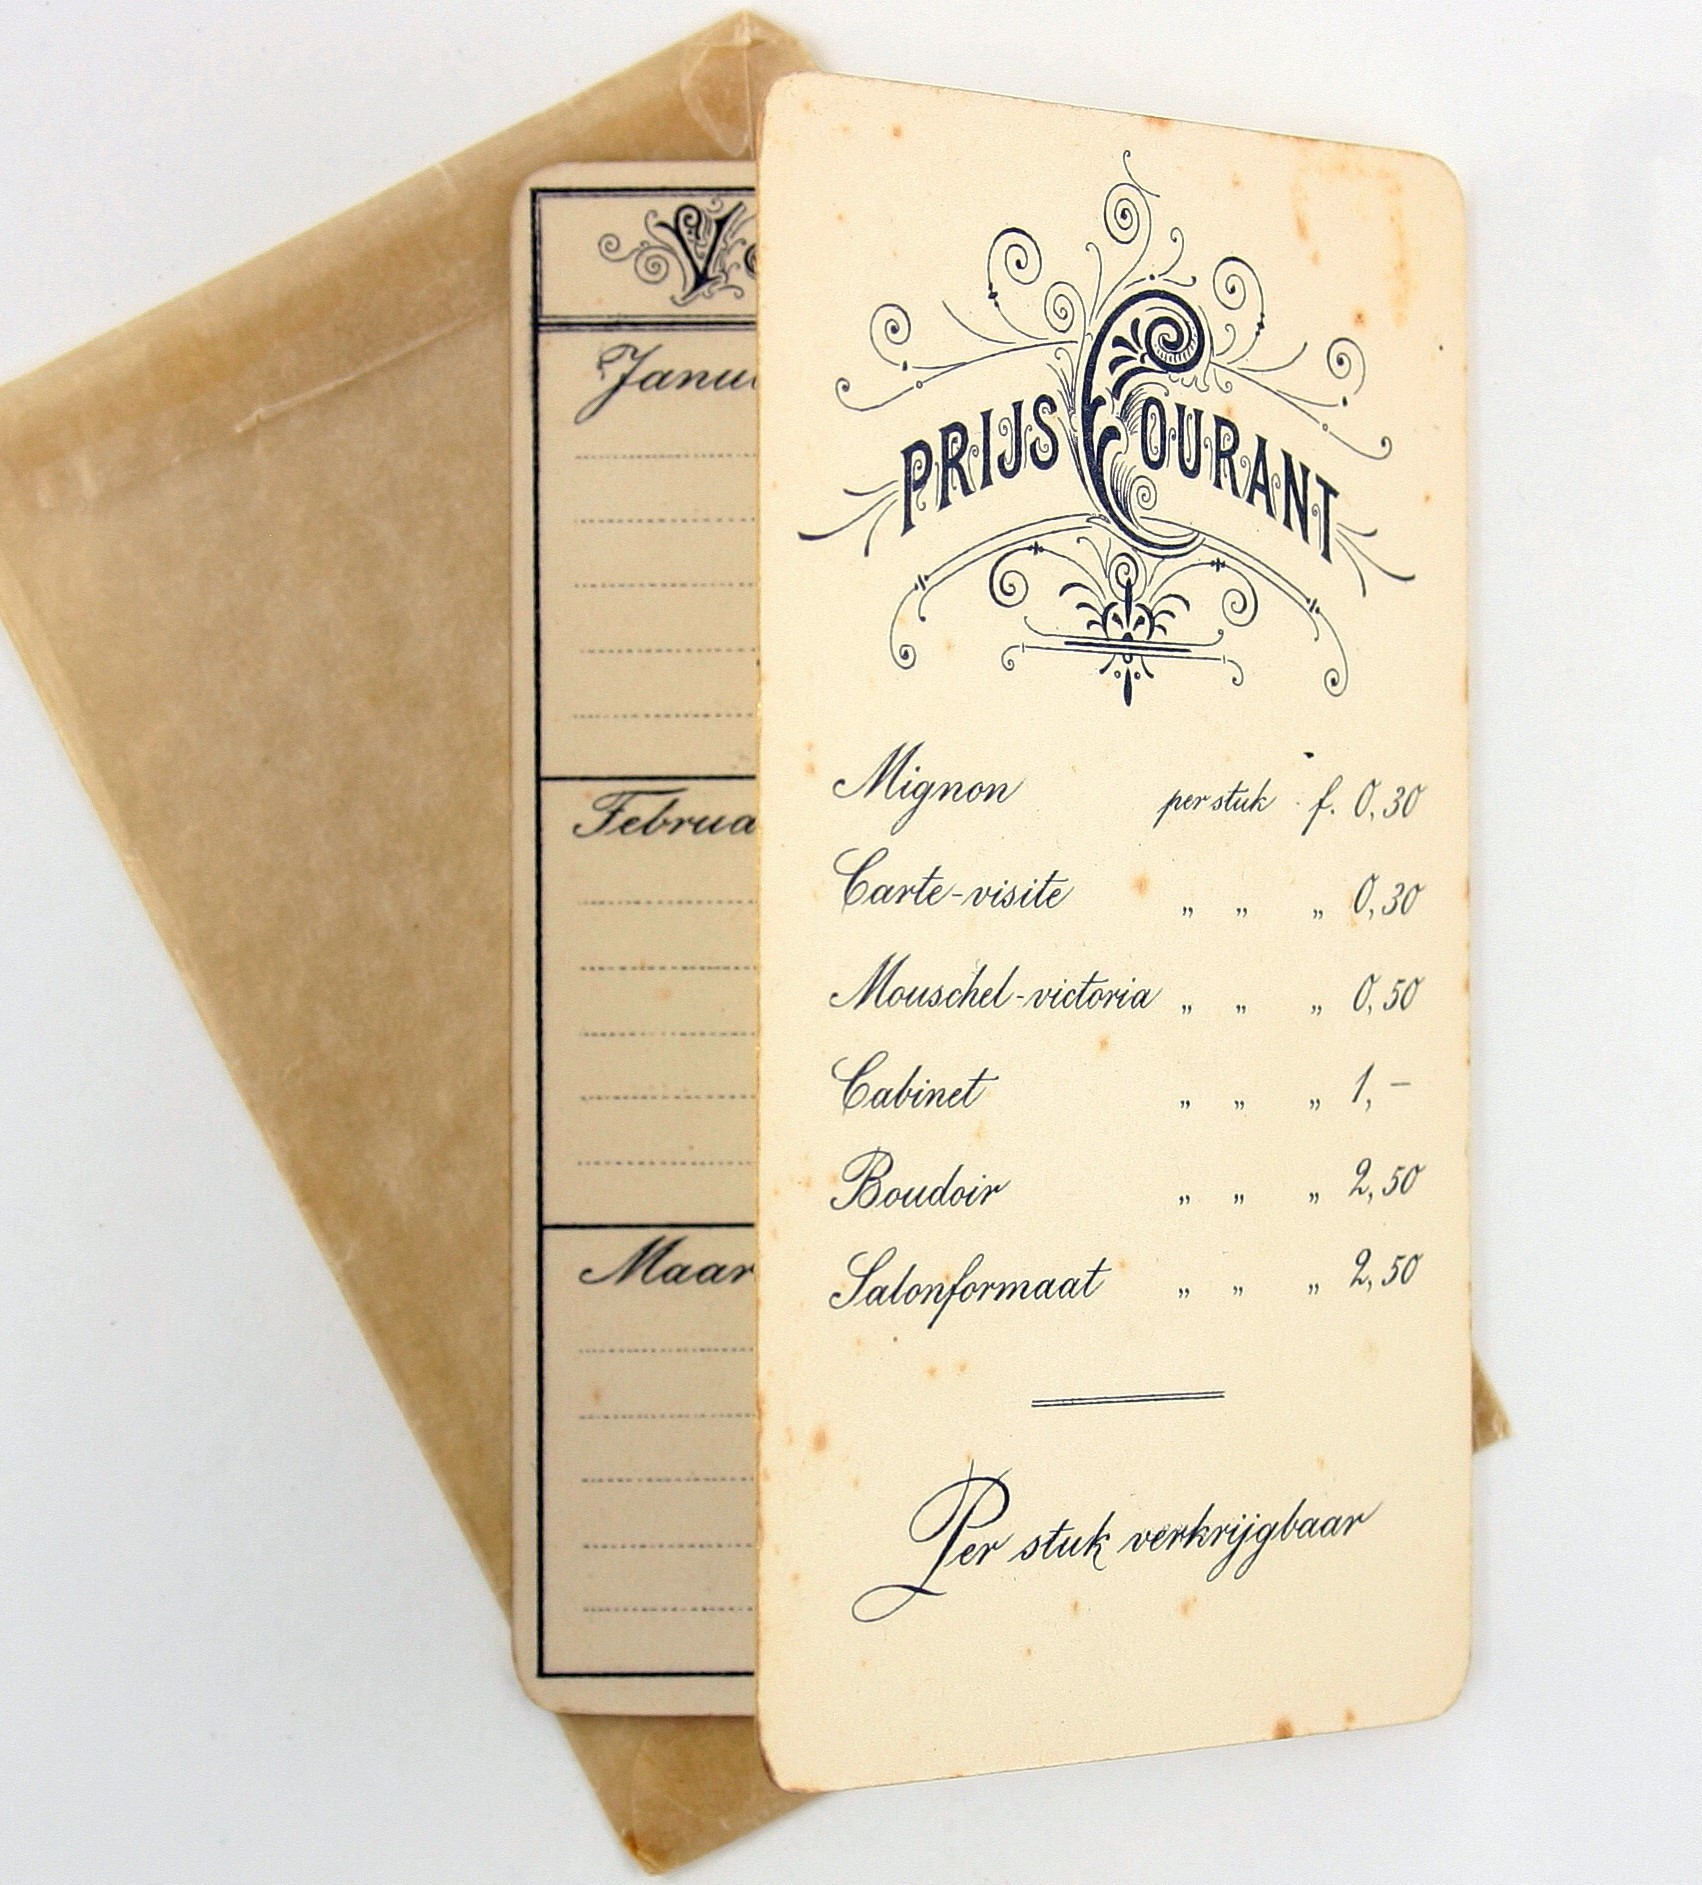 Mignon per stuk f. 0,30
Carte-visite „ „ „ 0,30
Mouschel-victoria „ „ „ 0,50
Cabinet „ „ „ 1,–
Boudoir „ „ „ 2,50
Salonformaat „ „ „ 2,50
Per stuk verkrijgbaar
PRIJS COURANT
Janu
Februa
Maar